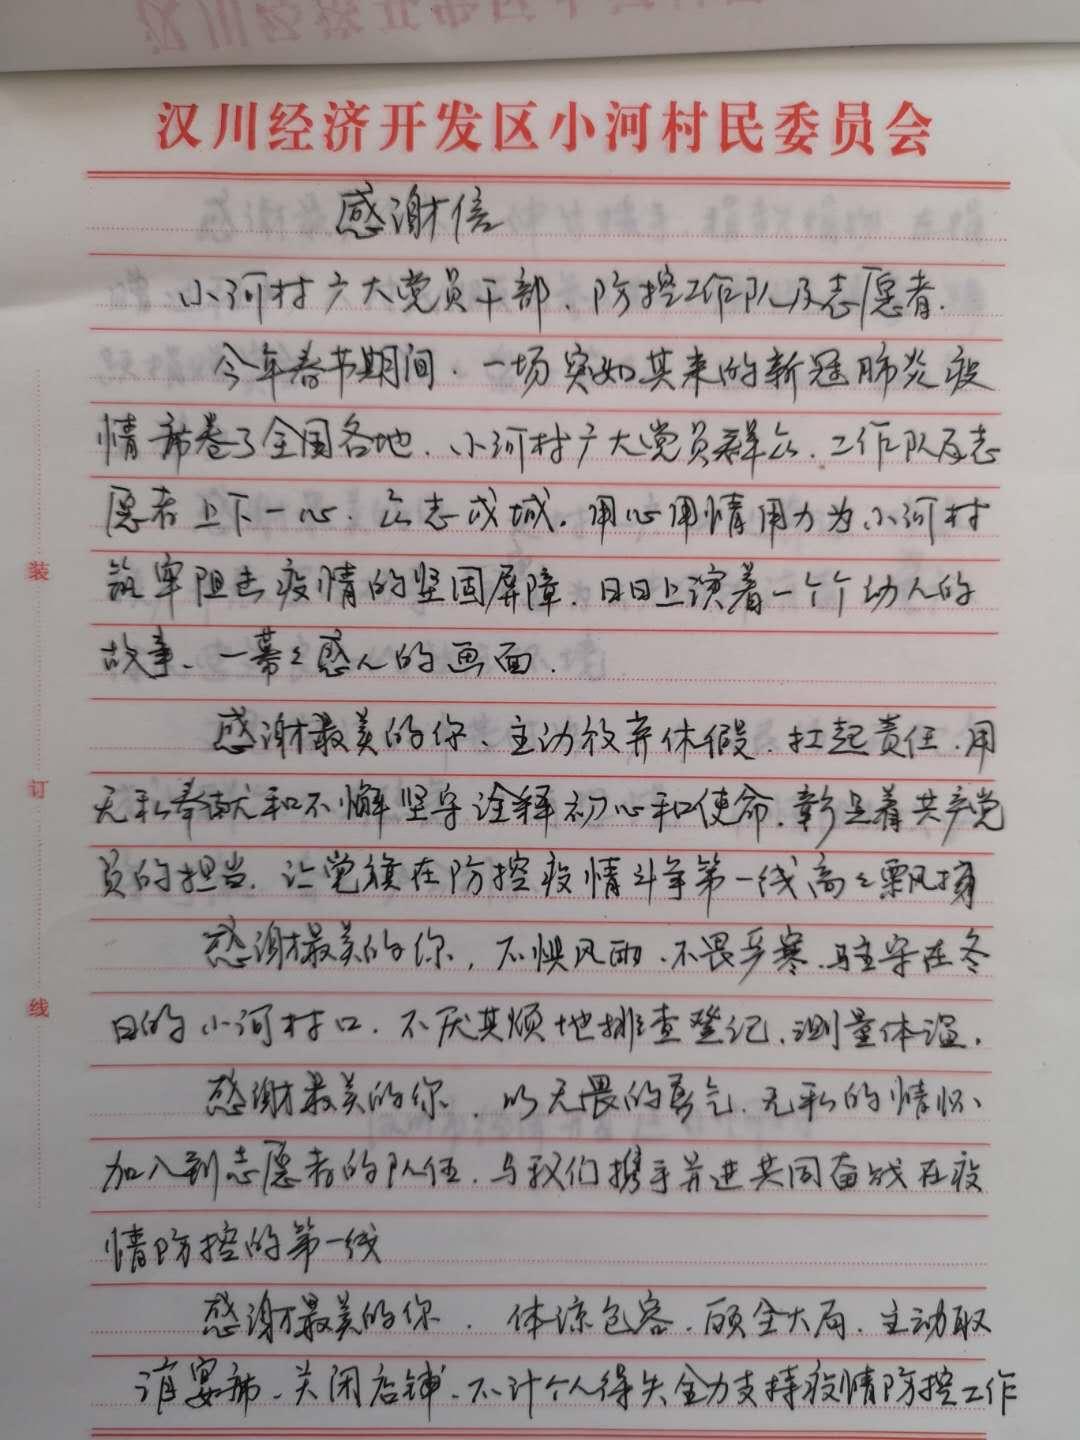 汉川经济开发区小河村民委员会
感谢信
小河村广大党员干部、防控工作队及志愿者.
今年春节期间.一场突如其来的新冠肺炎疫
情席卷了全国各地.小河村广大党员群众.工作队及志
愿者上下一心.众志成城.用心用情用力为小河村
筑牢阻击疫情的坚固屏障.日日上演着一个个动人的
故事、一幕々感人的画面.
感谢最美的你、主动放弃休假.扛起责任.用
无私奉献和不懈坚守诠释初心和使命.彰显着共产党
员的担当.让党旗在防控疫情斗争第一线高々飘扬
感谢最美的你,不惧风雨.不畏严寒.驻守在冬
日的小河村口.不厌其烦地排查登记.测量体温.
感谢最美的你.以无畏的勇气.无私的情怀、
加入到志愿者的队伍.与我们携手并进共同奋战在疫
情防控的第一线
感谢最美的你.体谅包容.顾全大局.主动取
消宴席、关闭店铺.不计个人得失全力支持疫情防控工作
装
订
线